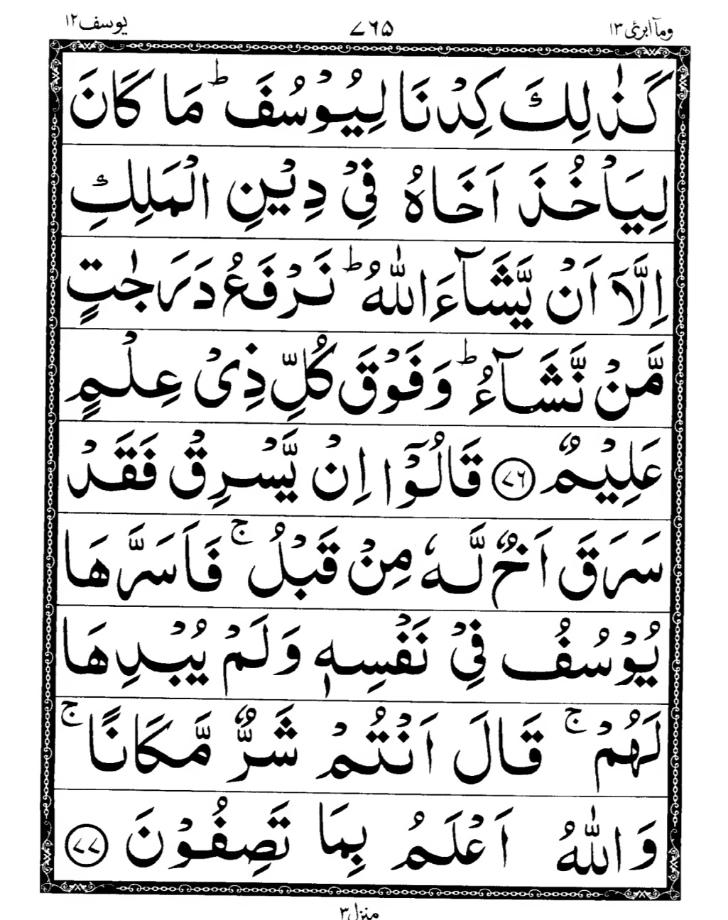 وماۤ ابرئ ١٣ ٧٦٥ يوسف ١٢
كَذٰلِكَ كِدْنَا لِيُوْسُفَ ؕ مَا كَانَ
لِيَاْخُذَ اَخَاهُ فِيْ دِيْنِ الْمَلِكِ
اِلَّاۤ اَنْ يَّشَآءَ اللّٰهُ ؕ نَرْفَعُ دَرَجٰتٍ
مَّنْ نَّشَآءُ ؕ وَفَوْقَ كُلِّ ذِيْ عِلْمٍ
عَلِيْمٌ ﴿٧٦﴾ قَالُوْۤا اِنْ يَّسْرِقْ فَقَدْ
سَرَقَ اَخٌ لَّهٗ مِنْ قَبْلُ ۚ فَاَسَرَّهَا
يُوْسُفُ فِيْ نَفْسِهٖ وَلَمْ يُبْدِهَا
لَهُمْ ۚ قَالَ اَنْتُمْ شَرٌّ مَّكَانًا ۚ
وَاللّٰهُ اَعْلَمُ بِمَا تَصِفُوْنَ ﴿٧٧﴾
منزل ٣